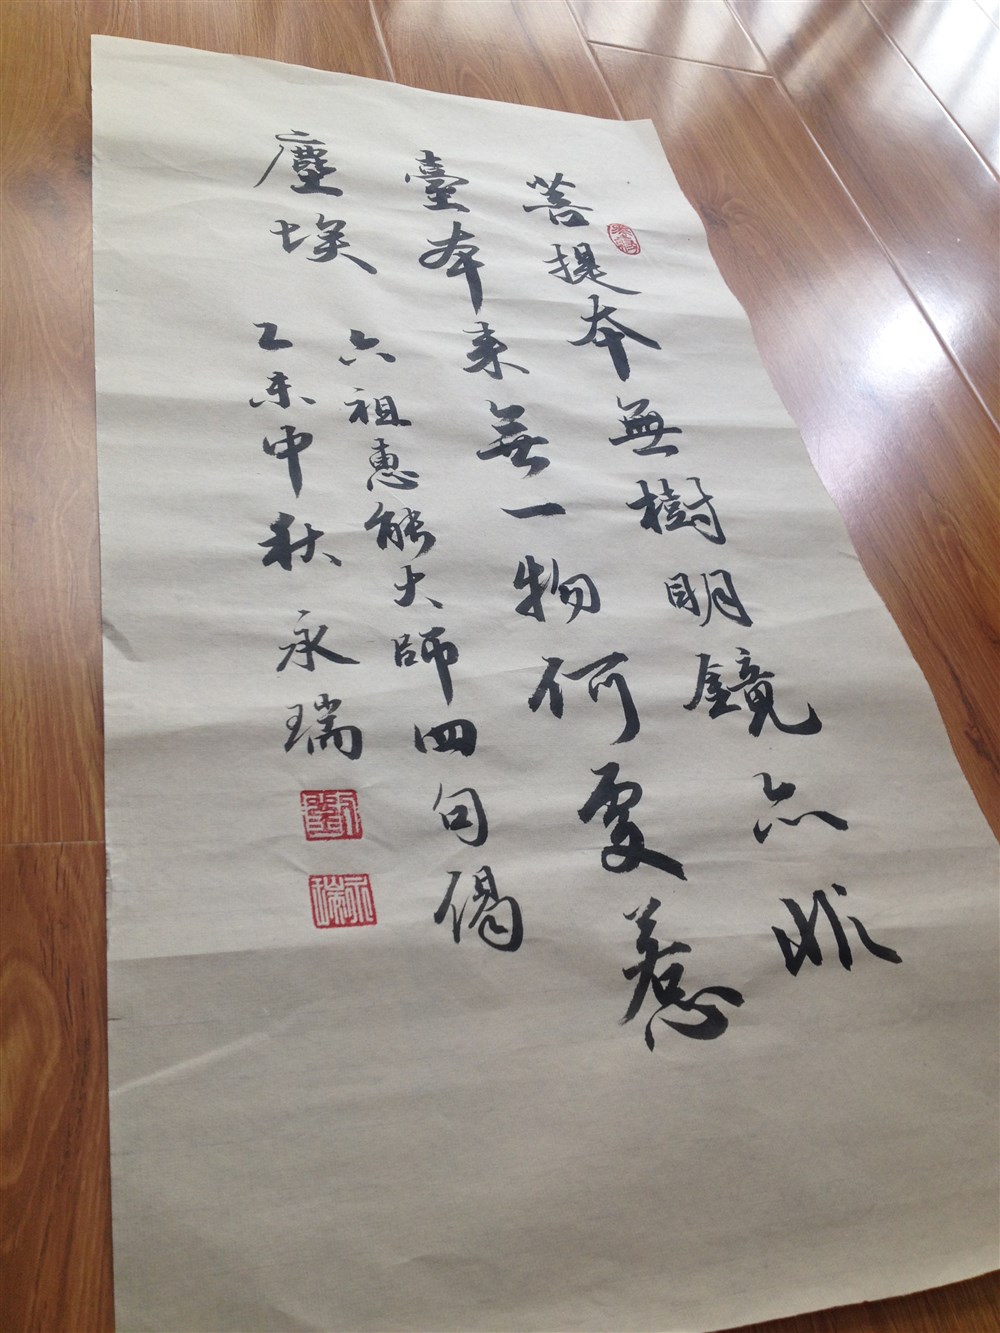 菩提本無樹明鏡亦非
臺本來無一物何處惹
塵埃
六祖惠能大師四句偈
乙未中秋永瑞
永瑞